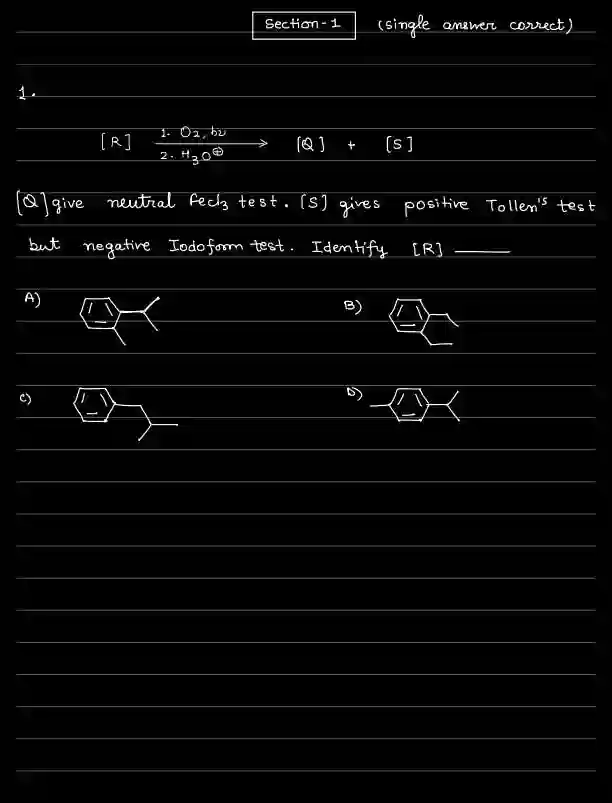 Section-1 (single answer correct)
1.
[R] 1. O2, hν [Q] + [S]
2. H3O⊕
[Q] give neutral FeCl3 test. [S] gives positive Tollen's test
but negative Iodoform test. Identify [R] ____
A) B)
C) D)